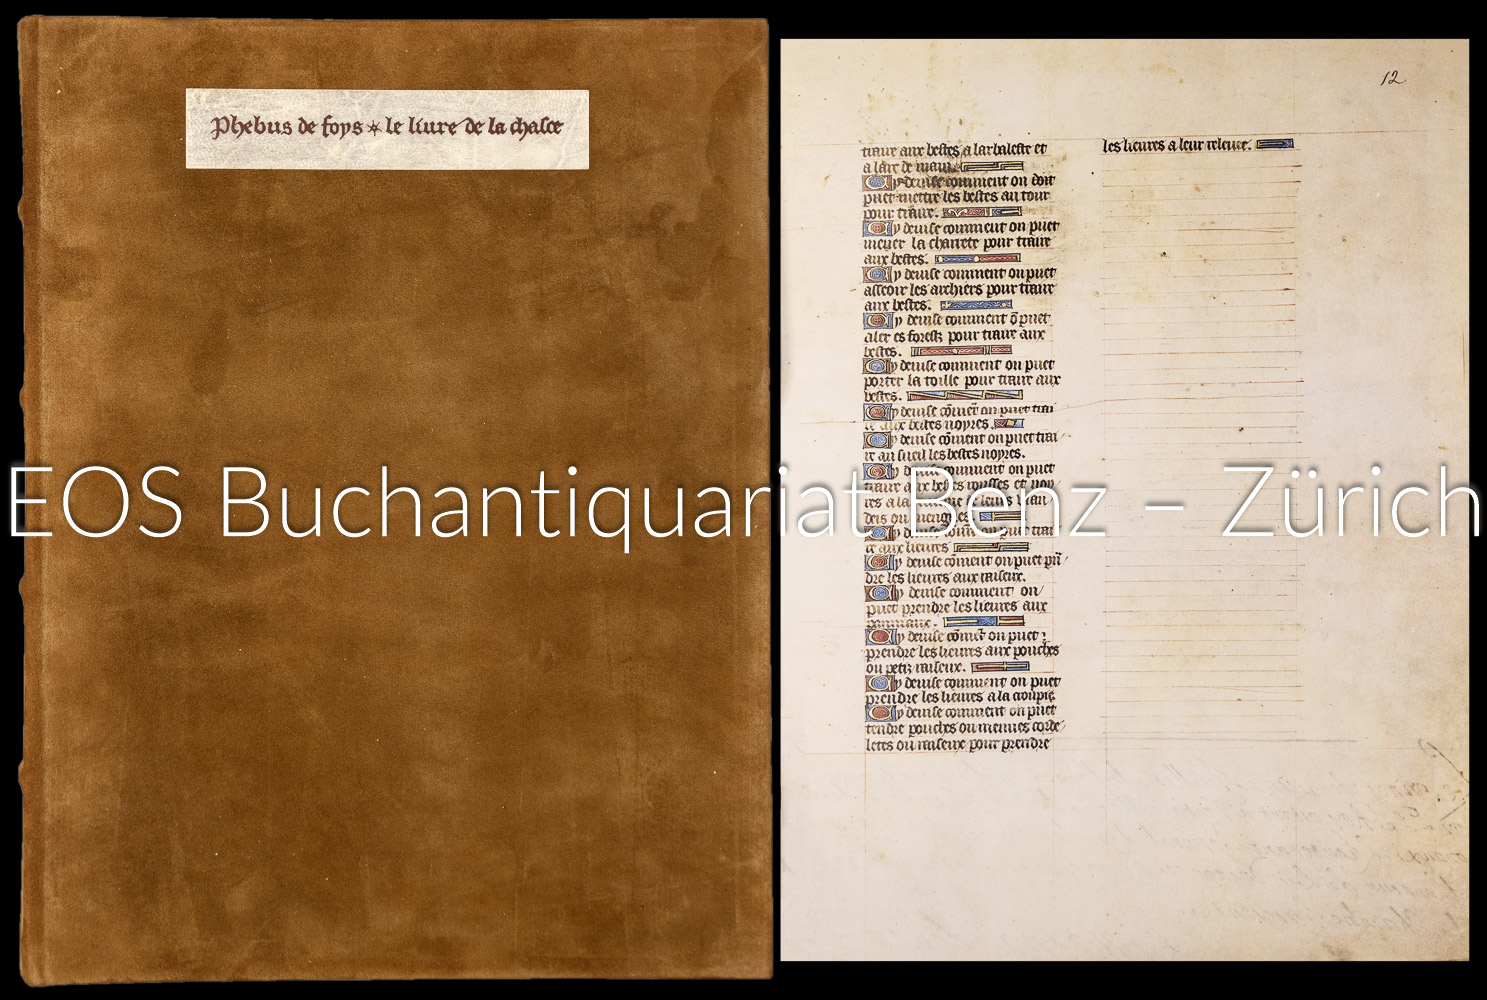 phebus de foys ✶ le liure de la chasce
12
traire aux bestes a larbaleste et
a larc de main.
Cy deuise comment on doit
puet mettre les bestes au tour
pour traire.
Cy deuise comment on puet
mener la charrete pour traire
aux bestes.
Cy deuise comment on puet
asseoir les archiers pour traire
aux bestes.
Cy deuise comment õ puet
aler es forestz pour traire aux
bestes.
Cy deuise comment on puet
porter la toille pour traire aux
bestes.
Cy deuise cõmẽt on puet trai
re aux bestes noyres.
Cy deuise cõment on puet trai
re au sueil les bestes noyres.
Cy deuise comment on puet
traire aux bestes rousses et noy
res a la
Cy deuise on puet trai
re aux lieures
Cy deuise cõment on puet pñ
dre les lieures aux raiseux.
Cy deuise comment on
puet prendre les lieures aux
Cy deuise cõmẽt on puet
prendre les lieures aux pouches
ou petiz raiseux.
Cy deuise comment on puet
prendre les lieures a la croupie
Cy deuise comment on puet
tendre pouches ou menues corde
letes ou raiseux pour prendre
les lieures a leur releuee.
EOS Buchantiquariat Benz – Zürich